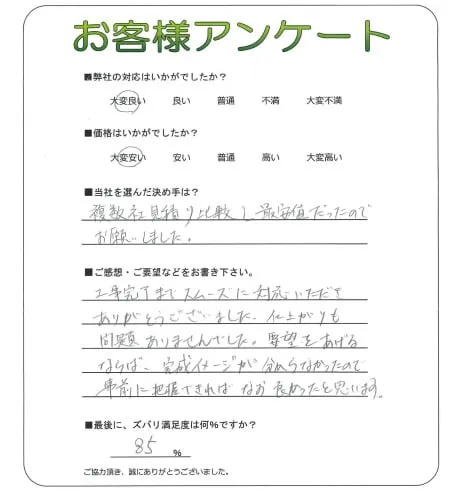 お客様アンケート
■弊社の対応はいかがでしたか？
大変良い 良い 普通 不満 大変不満
■価格はいかがでしたか？
大変安い 安い 普通 高い 大変高い
■当社を選んだ決め手は？
複数社見積り比較し最安値だったので
お願いしました。
■ご感想・ご要望などをお書き下さい。
工事完了までスムーズに対応いただき
ありがとうございました。仕上がりも
問題ありませんでした。要望をあげる
ならば、完成イメージが分からなかったので
事前に把握できればなお良かったと思います。
■最後に、ズバリ満足度は何％ですか？
85 %
ご協力頂き、誠にありがとうございました。